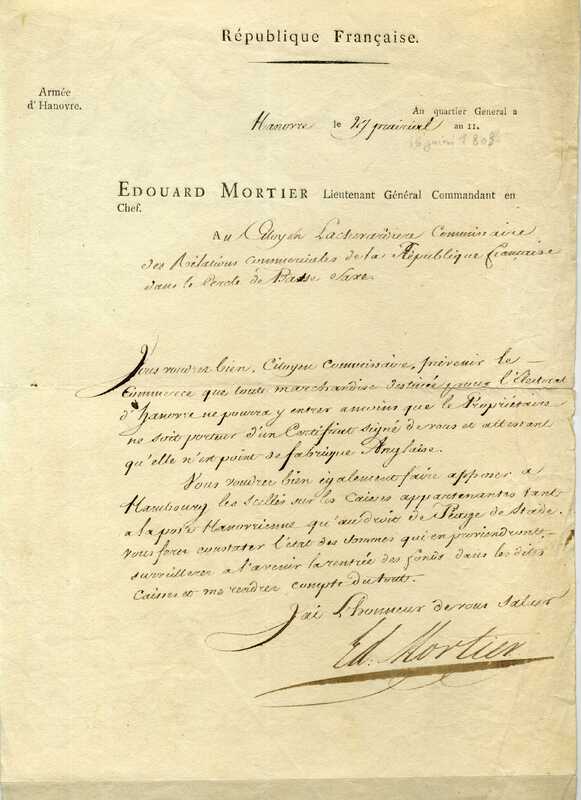 République Française.
Armée
d'Hanovre.
Au quartier General a
Hanovre le 27 prairial an 11.
16 juin 1803
EDOUARD MORTIER Lieutenant Général Commandant en
Chef.
Au Citoyen Lachevardiere Commissaire
des Rélations commerciales de la République française
dans le Cercle de Basse Saxe
Vous voudrez bien, Citoyen commissaire, prévenir le
Commerce que toute marchandise destinée pour l'Electorat
d'hanovre ne pourra y entrer amoins que le Propriétaire
ne soit porteur d'un Certificat signé de vous et attestant
qu'elle n'est point de fabrique Anglaise.
Vous voudrez bien également faire apposer a
Hambourg les scellés sur les Caisses appartenantes tant
a la poste Hanovrienne qu'au droit de Péage de Stade.
Vous ferez constater l'état des sommes qui en proviendront,
surveillerez a l'avenir la rentrée des fonds dans les dites
Caisses et me rendrez compte du tout.
J'ai L'honneur de vous Saluer
Ed. Mortier